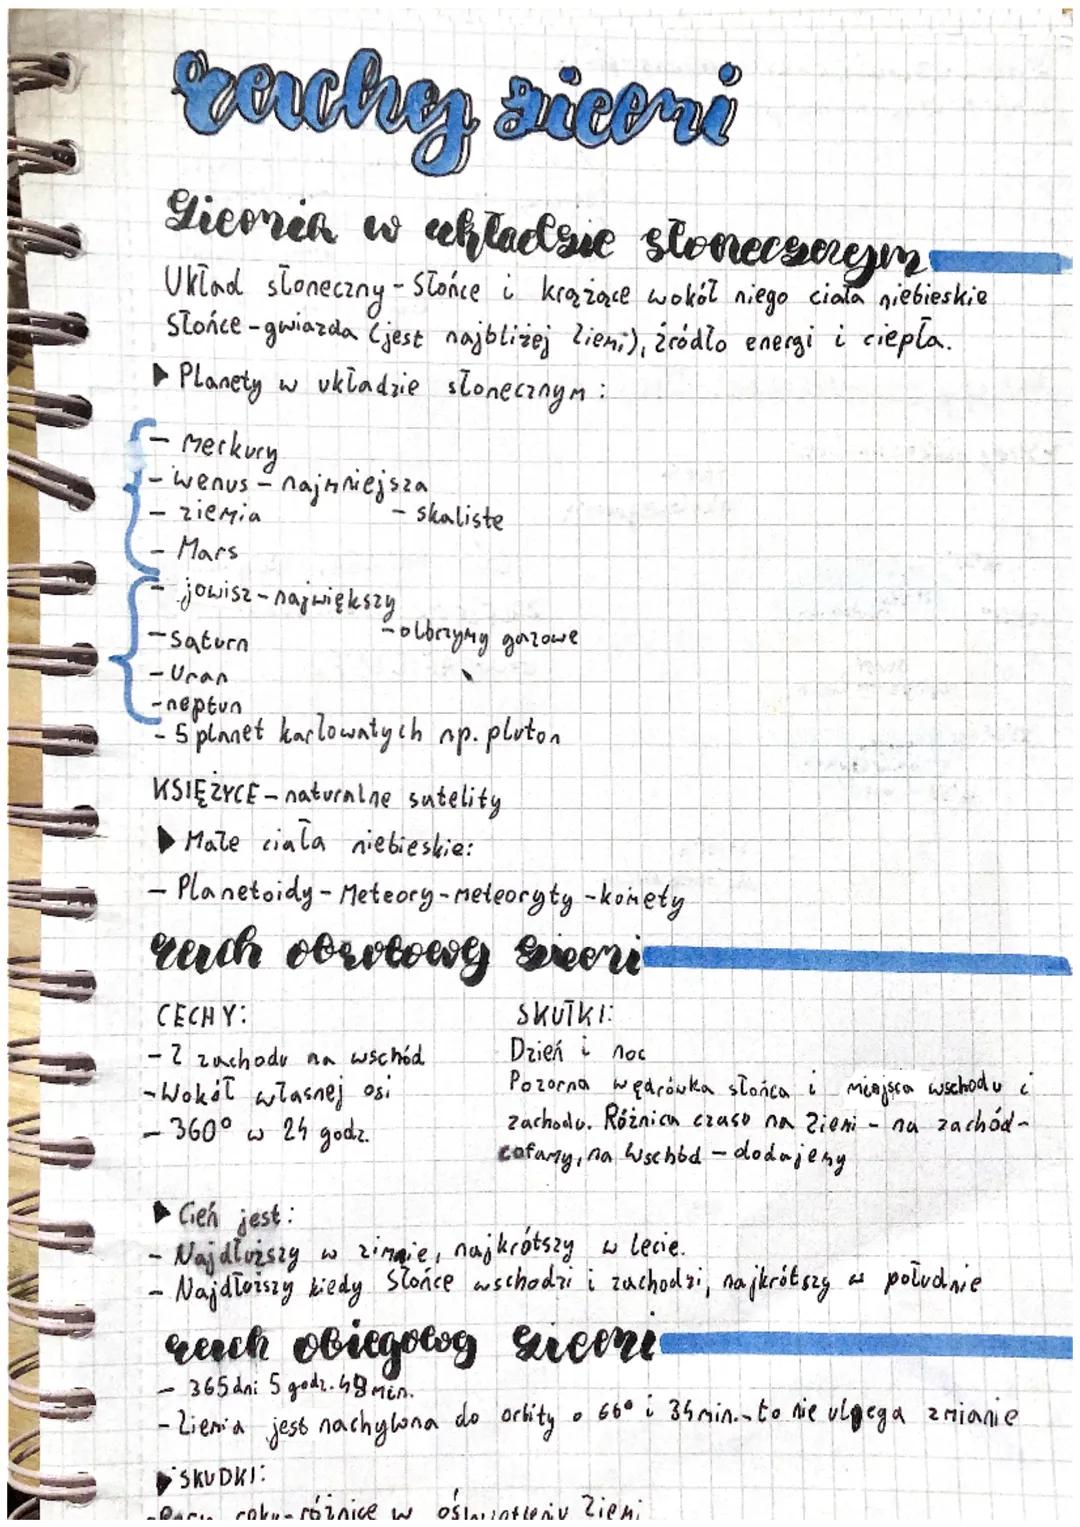 ruchy ziemi
Ziemia w układzie słonecznym
Układ słoneczny - Słońce i krążące wokół niego ciała niebieskie
Słońce - gwiazda (jest najbliżej Ziemi), źródło energi i ciepła.
▶ Planety w układzie słonecznym:
- Merkury
- wenus - najmniejsza
- ziemia - skaliste
- Mars
- jowisz - największy
- saturn - olbrzymy gazowe
- Uran
- neptun
- 5 planet karłowatych np. pluton
KSIĘŻYCE - naturalne satelity
▶ Małe ciała niebieskie:
- Planetoidy - Meteory - meteoryty - komety
ruch obrotowy ziemi
CECHY: SKUTKI:
- Z zachodu na wschód Dzień i noc
- Wokół własnej osi Pozorna wędrówka słońca i miejsca wschodu i
- 360° w 24 godz. zachodu. Różnica czasu na Ziemi - na zachód -
cofamy, na wschód - dodajemy
▶ Cień jest:
- Najdłuższy w zimie, najkrótszy w lecie.
- Najdłuższy kiedy Słońce wschodzi i zachodzi, najkrótszy w południe
ruch obiegowy ziemi
- 365 dni 5 godz. 48 min.
- Ziemia jest nachylona do orbity o 66° i 34 min. - to nie ulega zmianie
▶ SKUDKI:
- Pory roku - różnice w oświetleniu Ziemi